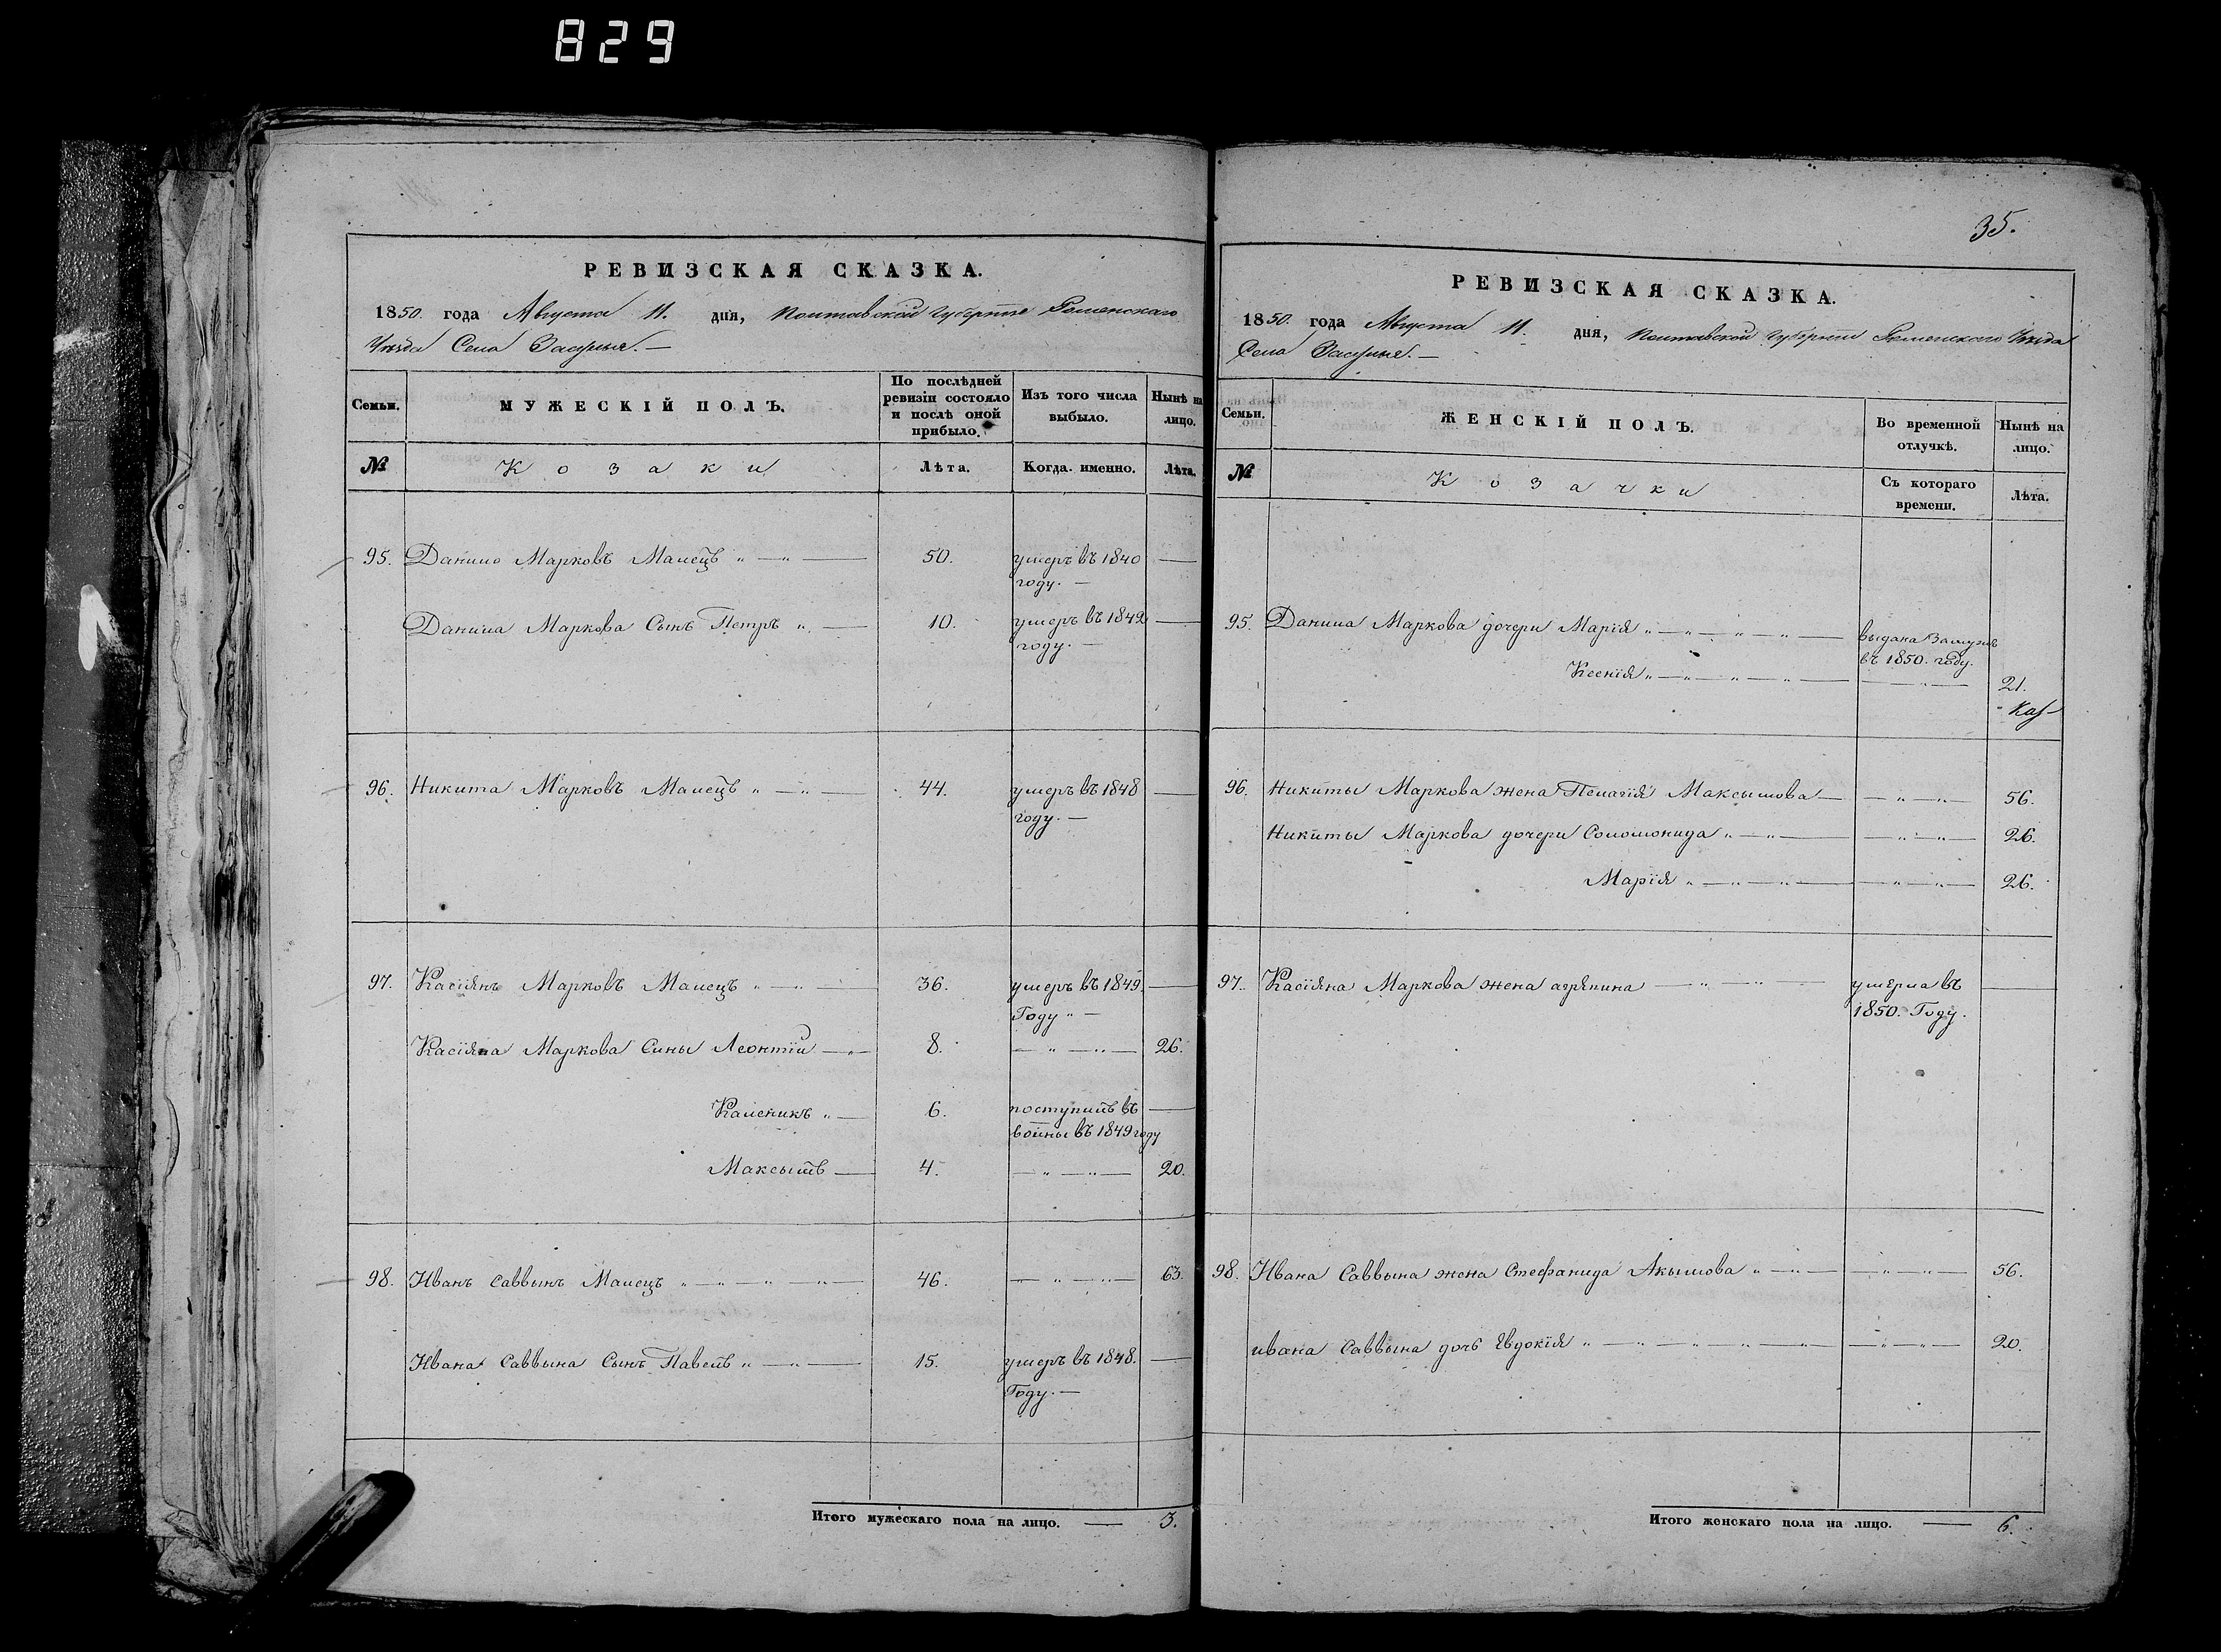 829
РЕВИЗСКАЯ СКАЗКА.
1850. года Августа 11. дня, Полтавской Губернiи Роменскаго
Уѣзда Села Засулья. —
Семьи. МУЖЕСКIЙ ПОЛЪ. По послѣдней ревизiи состояло и послѣ оной прибыло. Изъ того числа выбыло. Нынѣ на лицо.
№ Козаки Лѣта. Когда именно. Лѣта.
95. Данило Марковъ Малецъ „ — „ — 50. умеръ въ 1840 —
году. —
Данила Маркова Сынъ Петръ „ — 10. умеръ въ 1849 —
году. —
96. Никита Марковъ Малецъ „ — „ — 44. умеръ въ 1848 —
году. —
97. Касiянъ Марковъ Малецъ „ — „ — 36. умеръ въ 1849. —
Году „ —
Касiяна Маркова Сины Леонтiй — „ — 8. — „ — „ — 26.
Каленикъ „ — 6. поступилъ въ —
войны въ 1849 году
Максымъ — 4. — „ — „ — 20.
98. Иванъ Саввынъ Малецъ „ — „ — „ — „ — 46. — „ — „ — 63.
Ивана Саввына Сынъ Павелъ „ — „ — 15. умеръ въ 1848. —
Году. —
Итого мужескаго пола на лицо. — 3.
35.
РЕВИЗСКАЯ СКАЗКА.
1850. года Августа 11. дня, Полтавской Губернiи Роменскаго Уѣзда
Села Засулья. —
Семьи. ЖЕНСКIЙ ПОЛЪ. Во временной отлучкѣ. Нынѣ на лицо.
№ Козачки Съ котораго времени. Лѣта.
95. Данила Маркова дочери Марiя „ — „ — „ — „ — выдана Замужъ
въ 1850. году.
Ксенiя „ — „ — „ — „ — — „ — 21.
96. Никиты Маркова жена Пелагiя Максымова — — „ — „ — 56.
Никиты Маркова дочери Соломонида „ — „ — — „ — „ — 26.
Марiя „ — „ — „ — — „ — „ — 26.
97. Касiяна Маркова жена агряпина — „ — „ — умерла въ —
1850. Году.
98. Ивана Саввына жена Стефанида Акымова „ — „ — — „ — „ — 56.
ивана Саввына дочь Евдокiя „ — „ — „ — „ — „ — — „ — „ — 20.
Итого женскаго пола на лицо. — 6.